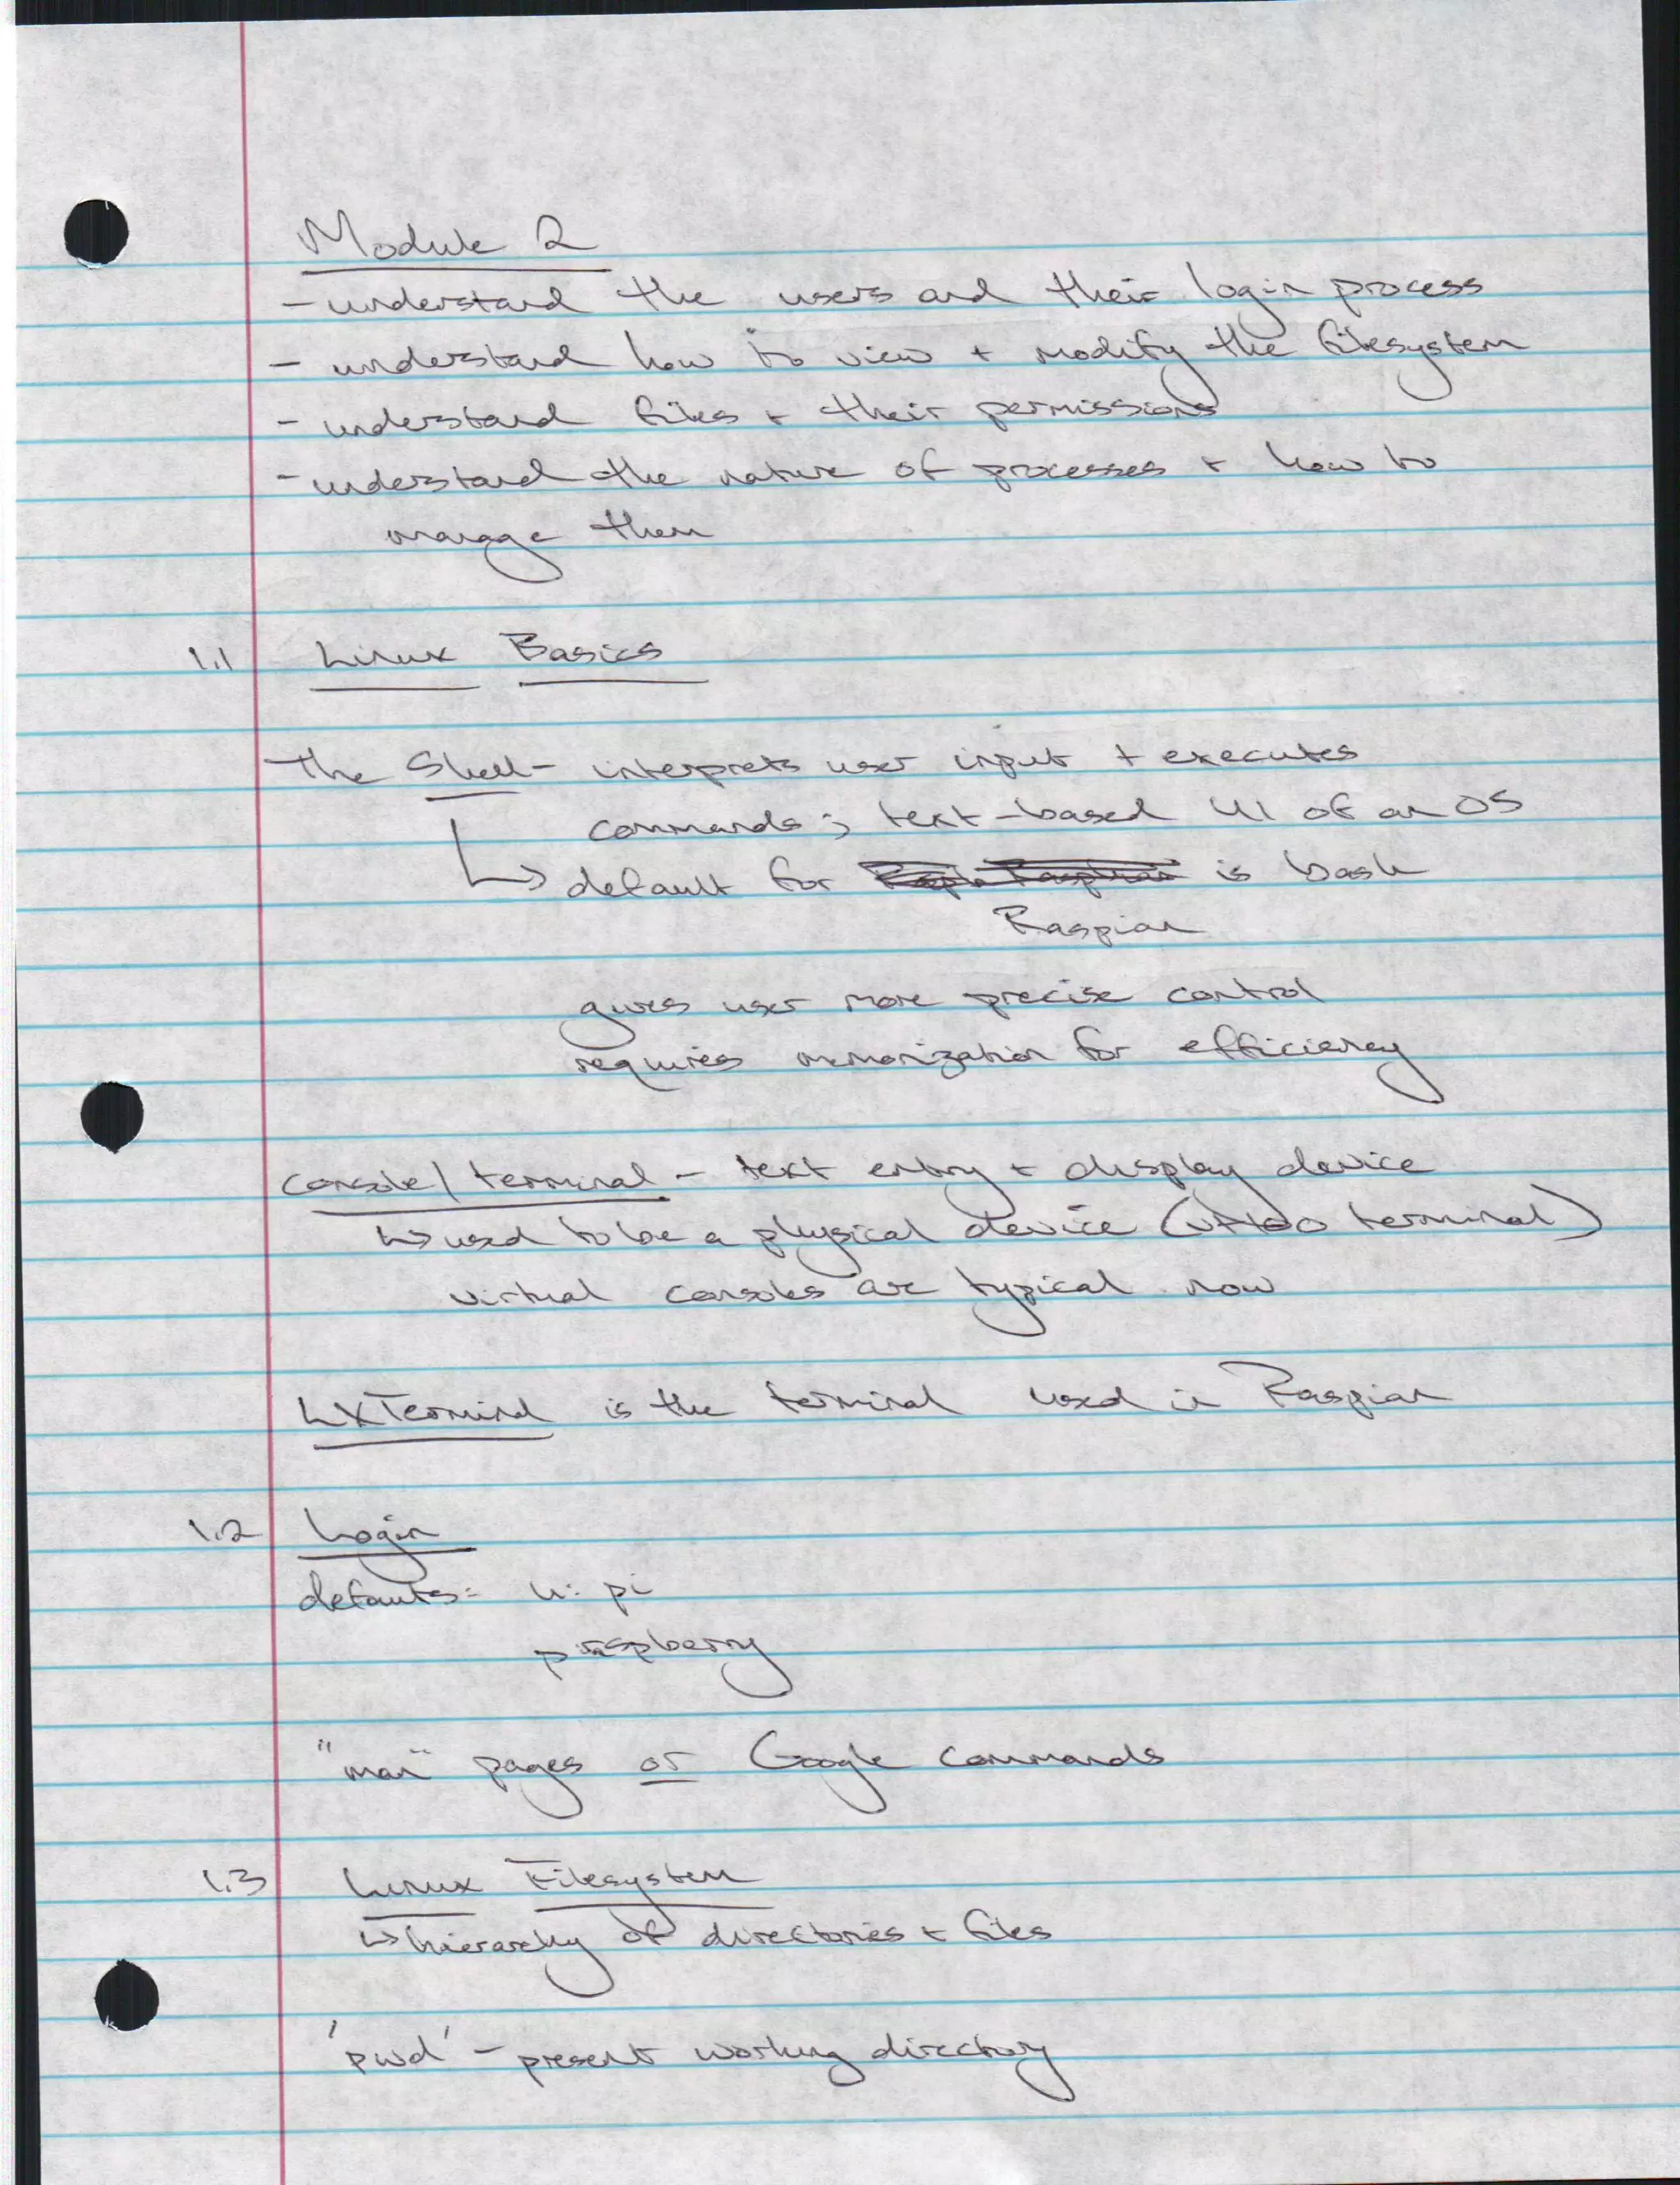 Module 2
- understand the users and their login process
- understand how to view + modify the filesystem
- understand files + their permissions
- understand the nature of processes + how to
manage them
1.1 Linux Basics
The Shell - interprets user input + executes
commands; text-based UI of an OS
↳ default for is bash
Raspian
gives user more precise control
requires memorization for efficiency
console/terminal - text entry + display device
↳ used to be a physical device (VT100 terminal)
virtual consoles are typical now
LXTerminal is the terminal used in Raspian
1.2 Login
defaults: u: pi
p: raspberry
"man" pages or Google commands
1.3 Linux Filesystem
↳ hierarchy of directories + files
'pwd' - present working directory